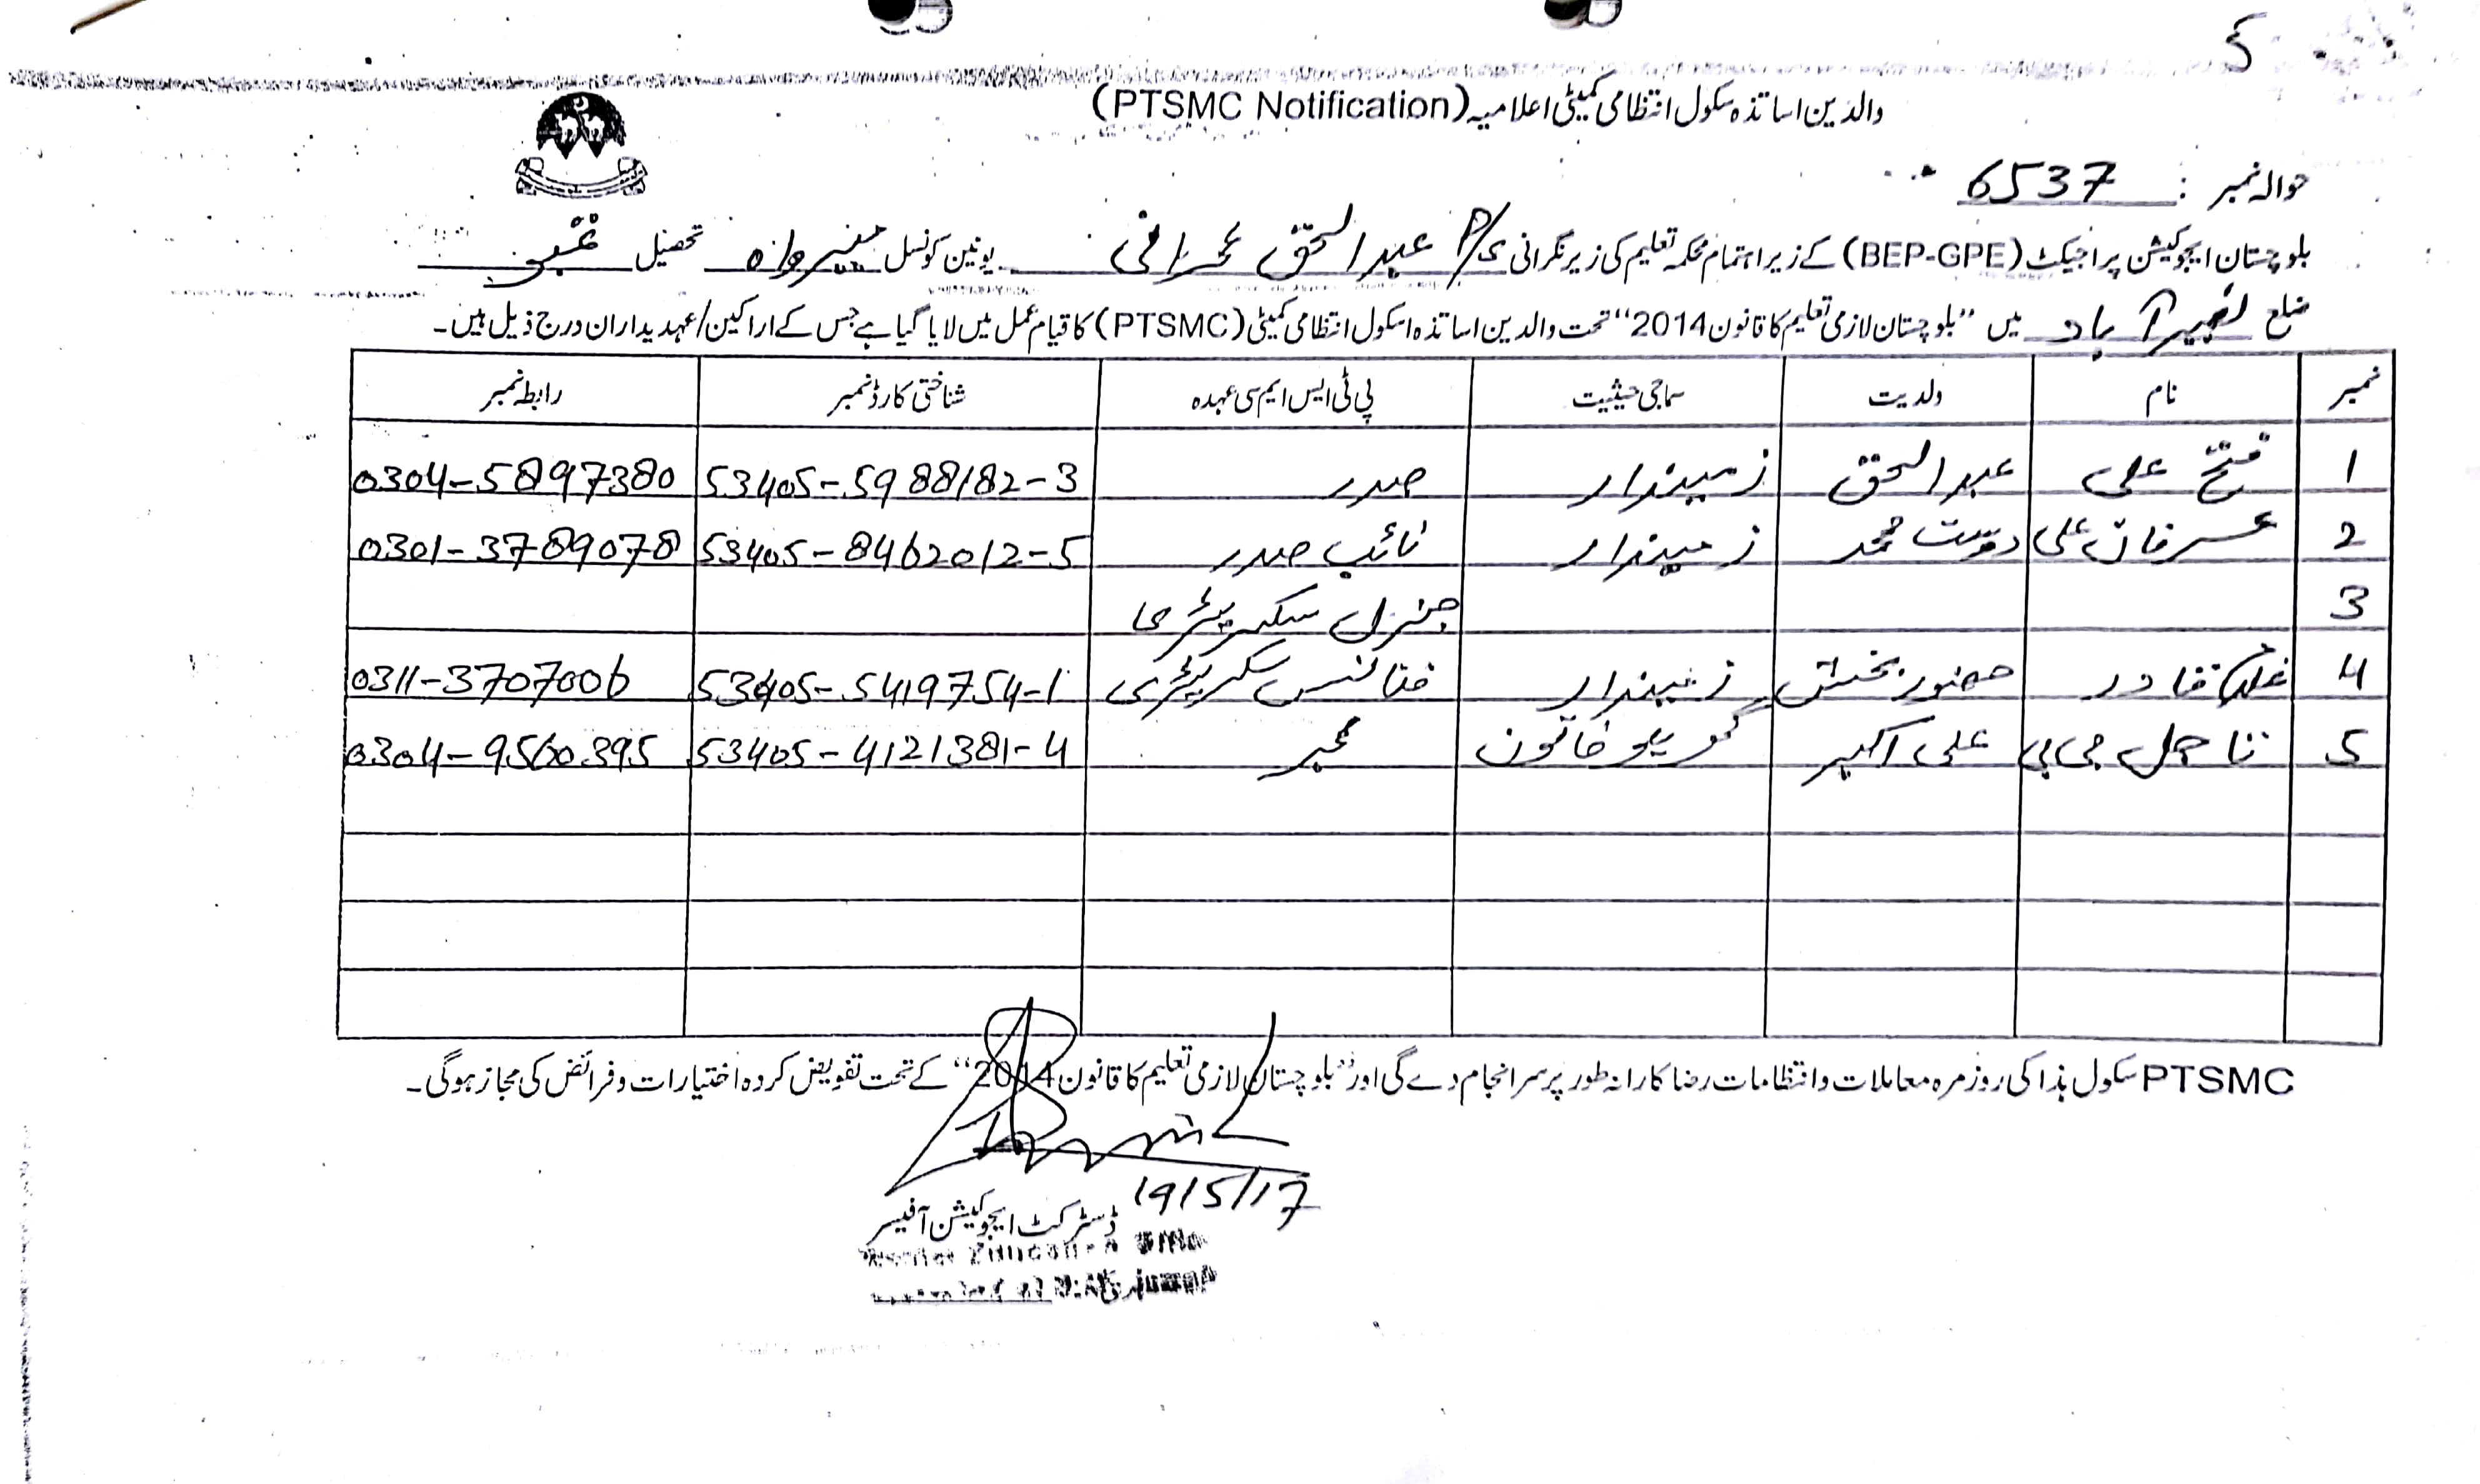 5
والدین اساتذہ سکول انتظامی کمیٹی اعلامیہ (PTSMC Notification)
حوالہ نمبر : 6537
بلوچستان ایجوکیشن پراجیکٹ (BEP-GPE) کے زیر اہتمام محکمہ تعلیم کی زیر نگرانی عبدالحق عمرانی یونین کونسل تحصیل
ضلع نصیر آباد میں "بلوچستان لازمی تعلیم کا قانون 2014" تحت والدین اساتذہ اسکول انتظامی کمیٹی (PTSMC) کا قیام عمل میں لایا گیا ہے جس کے اراکین/عہدیداران درج ذیل ہیں۔
نمبر نام ولدیت سماجی حیثیت پی ٹی ایس ایم سی عہدہ شناختی کارڈ نمبر رابطہ نمبر
1 فتح علی عبدالحق زمیندار صدر 53405-5988182-3 0304-5897380
2 عرفان علی دوست محمد زمیندار نائب صدر 53405-8462012-5 0301-3789078
3 جنرل سیکریٹری
4 غلام قادر حضور بخش زمیندار فنانس سکریٹری 53405-5419754-1 0311-3707006
5 علی اکبر گھریلو خاتون ممبر 53405-4121381-4 0304-9560395
PTSMC سکول ہذا کی روزمرہ معاملات و انتظامات رضا کارانہ طور پر سرانجام دے گی اور "بلوچستان لازمی تعلیم کا قانون 2014" کے تحت تفویض کردہ اختیارات و فرائض کی مجاز ہوگی۔
19/5/17
ڈسٹرکٹ ایجوکیشن آفیسر